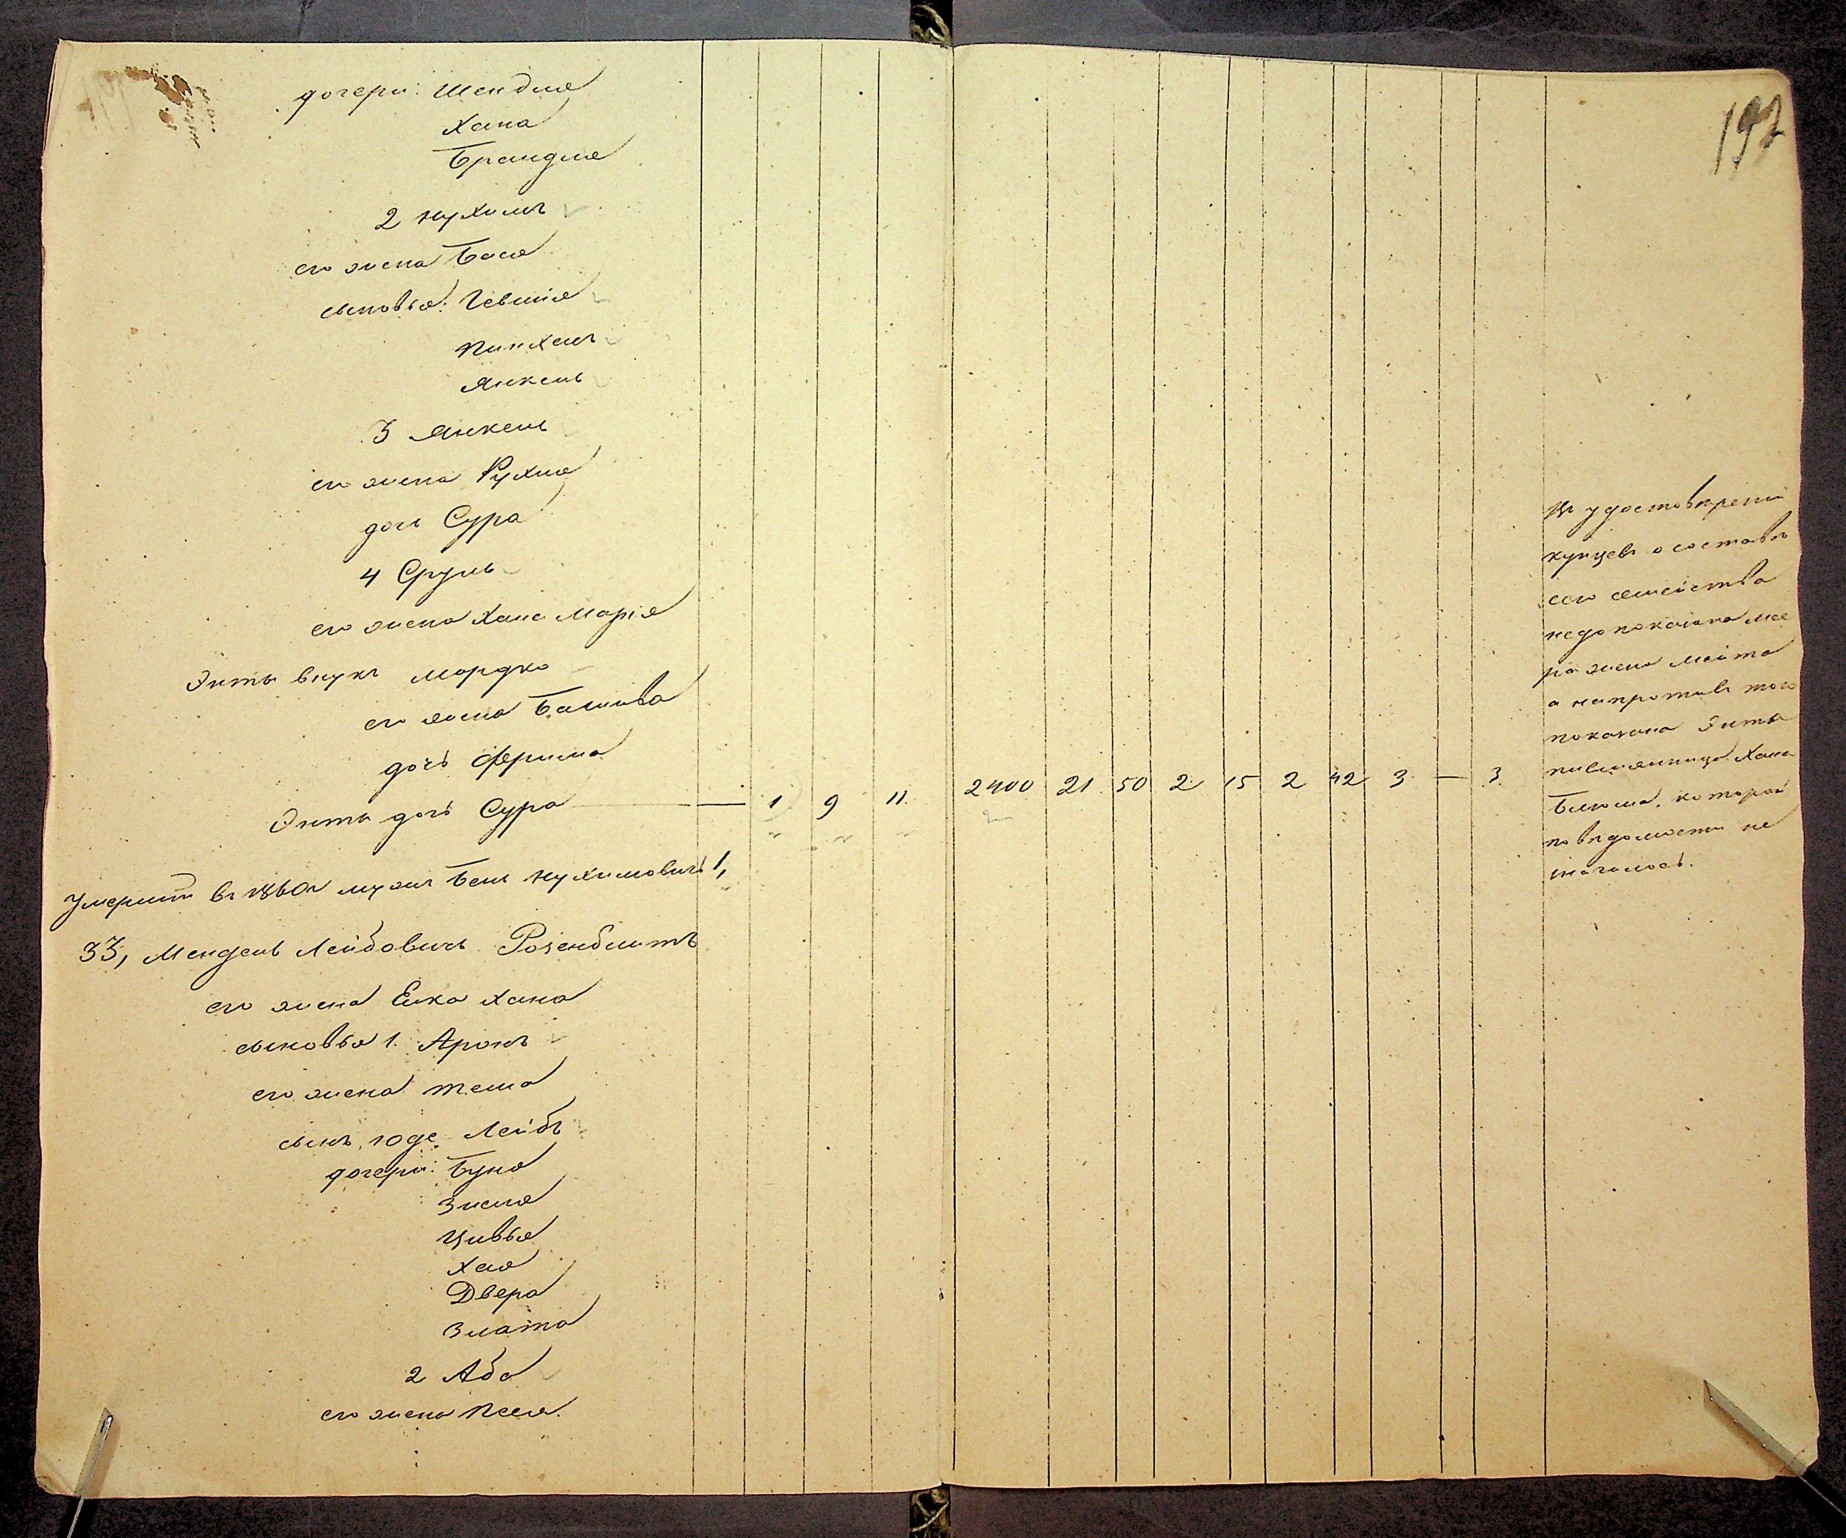 дочери: Шендля
Хана
Брандля
2 Нухимъ
его жена Бася
сыновья: Гевшія
Пинхасъ
Янкель
3 Янкель
его жена Рухля
дочь Сура
4 Сруль
его жена Хана Марія
Энты внукъ Мордко
его жена Башива
дочь Фрима
Энты дочь Сура — 1 9 11 2400 21 50 2 15 2 42 3 — 3
Умерший въ мужъ Бень Нухимовичъ 1,
33, Мендель Лейбовичъ Розенблитъ
его жена Елка Хана
сыновья 1. Аронъ
его жена Тема
сынъ Юде Лейбъ
дочери: Буна
Зисля
Цивья
Хая
Двера
Злата
2 Аба
его жена Песя.
197
Въ удостовѣреніи
купцевъ о составѣ
сего семейства
недопоказана
жена Мейта
а напротивъ того
показана Энты
племянница Хана
Блюма, которой
по вѣдомости не
значилось.